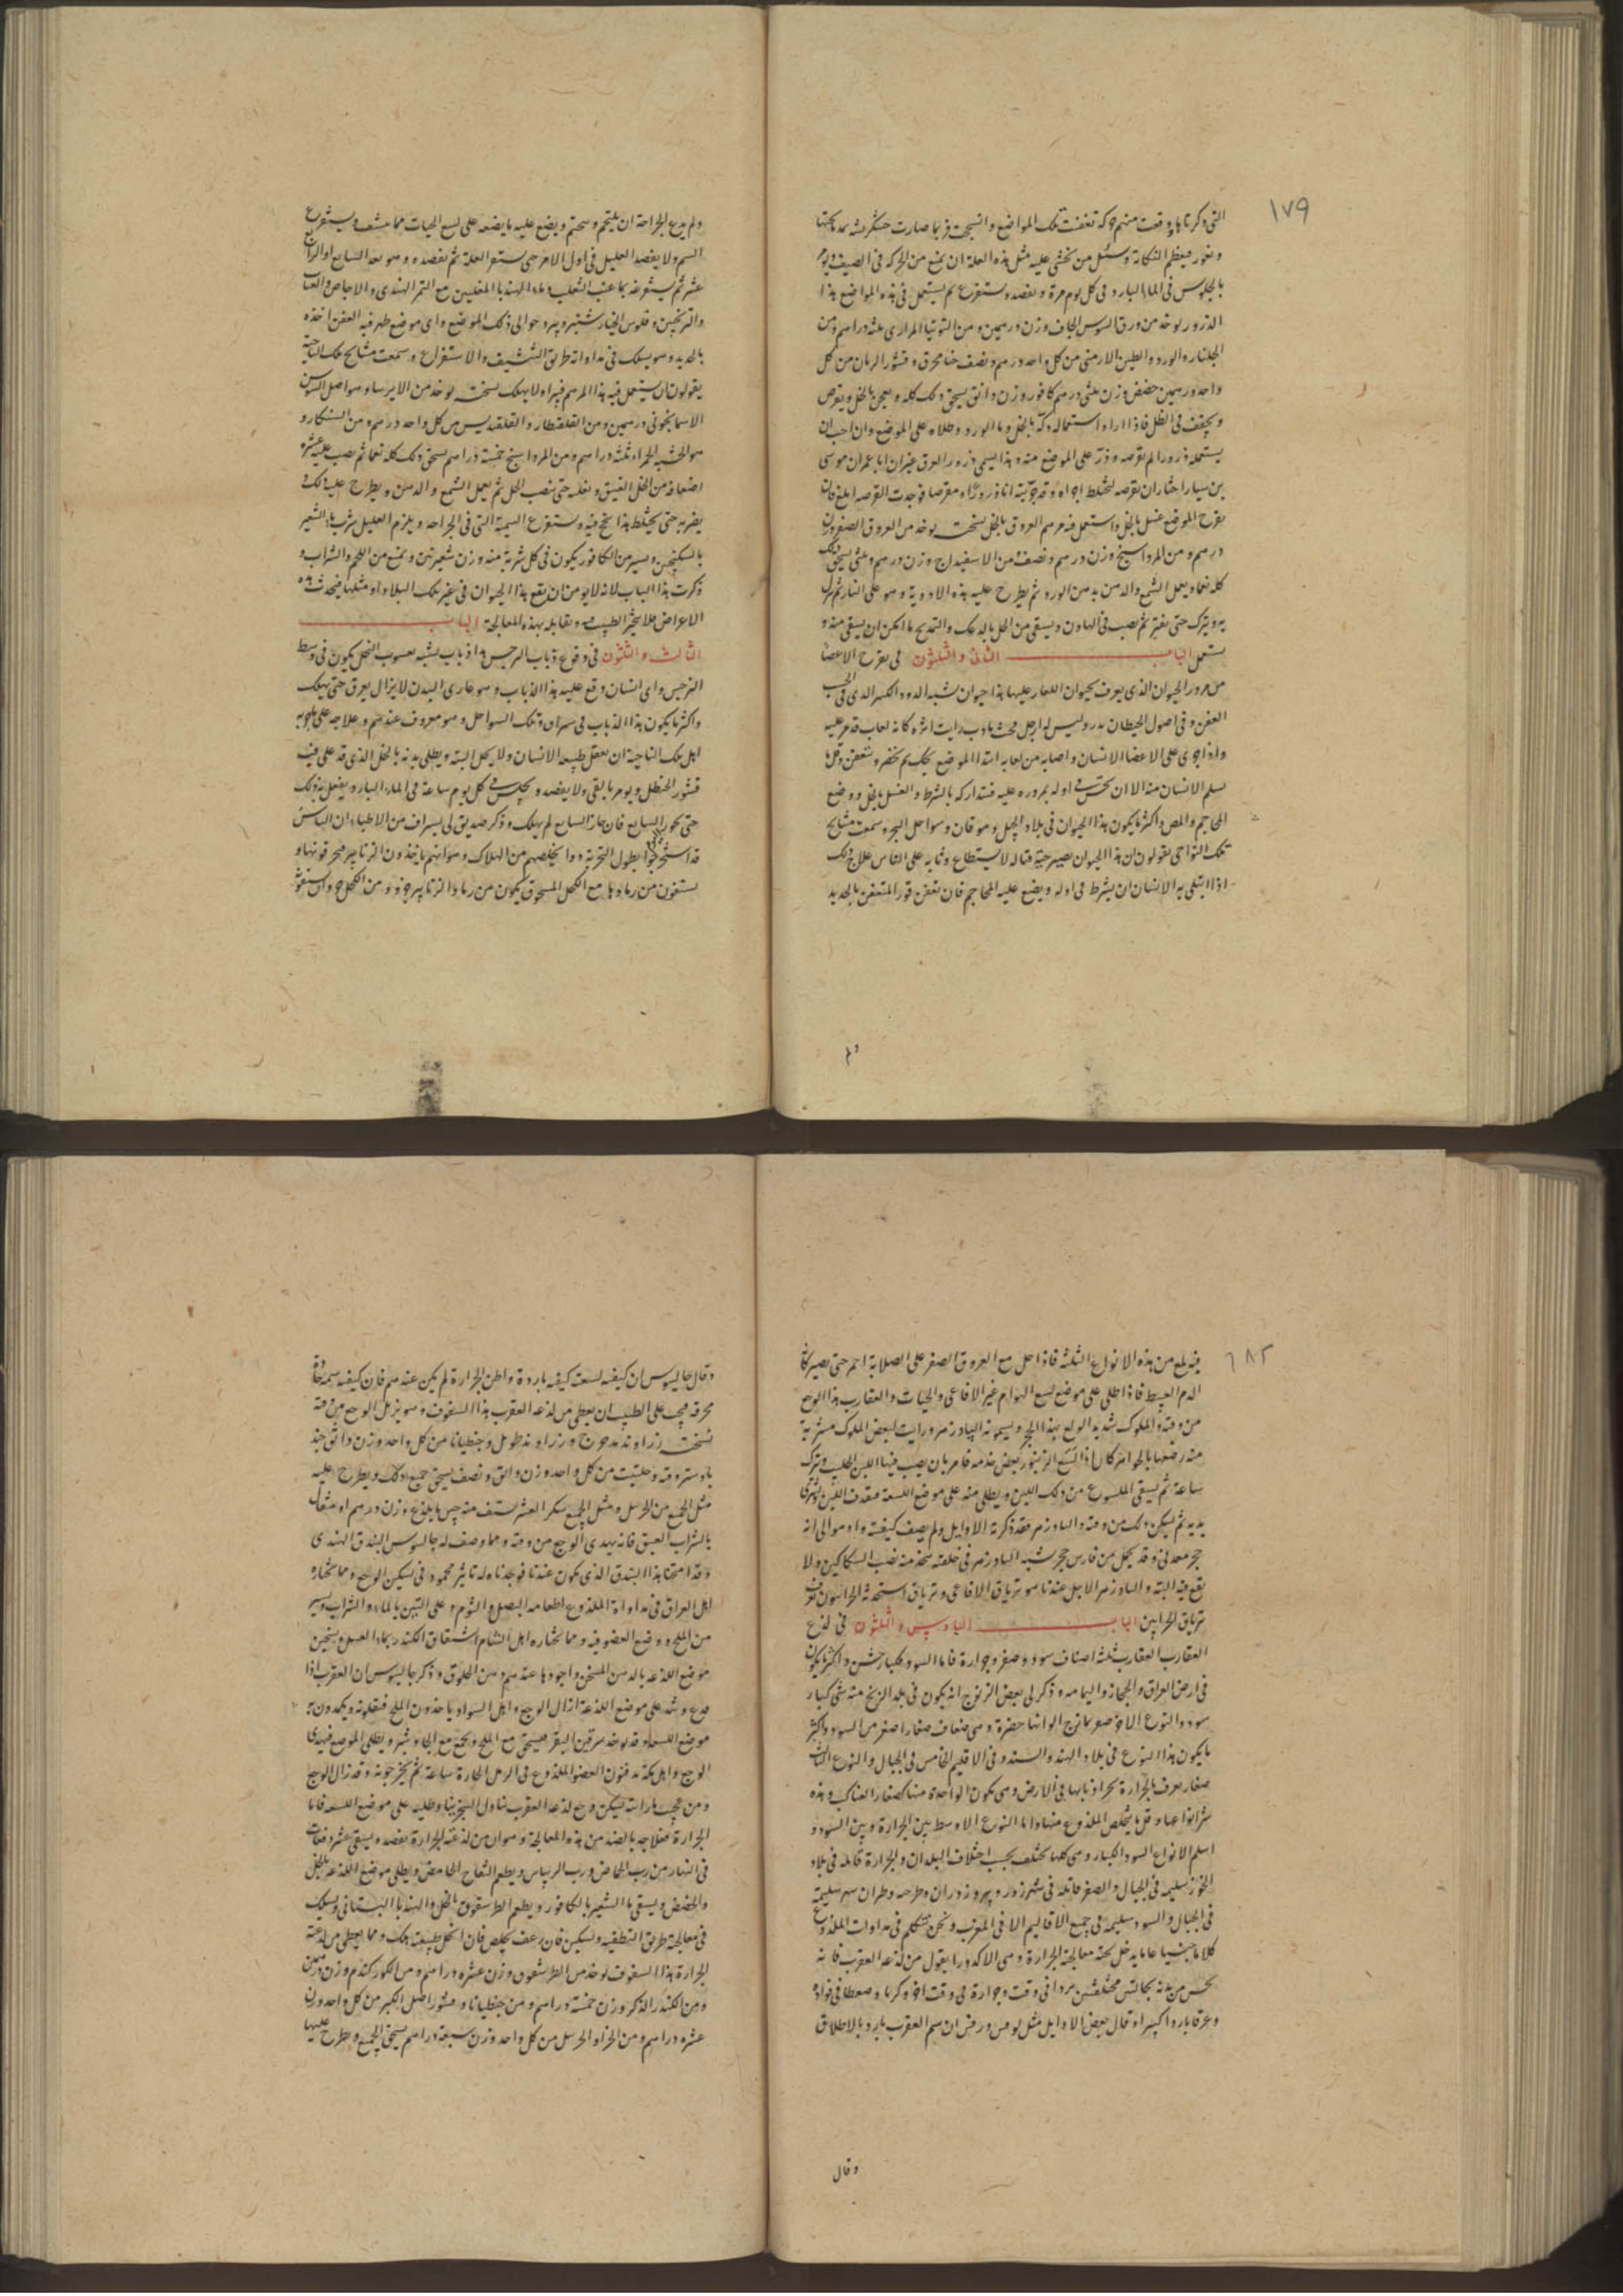 ١٧٩
التى ذكرناها وقعت منهم حركة تعفنت تلك المواضع
بالجلوس فى الماء البارد فى كل يوم مرة ويفصد ويستفرغ ثم يستعمل فى هذه المواضع هذا
الذرور يوخذ من ورق السوس الجاف وزن درهمين ومن التوتيا المرارى ثلثة دراهم ومن
الجلنار والورد والطين الارمنى من كل واحد درهم ونصف حنا محرق وقشور الرمان من كل
واحد درهمين حضض وزن ثلثى درهم كافور وزن دانق يسحق ذلك كله ويعجن بالخل ويقرص
ويجفف فى الظل فاذا اراد استعماله دكه بالخل وما الورد وطلاه على الموضع وان احب ان
يستعمله ذرورا لم يقرصه وذر على الموضع منه وهذا يسمى ذرور العروق غيران ابا عمران موسى
بن سيار اختار ان يقرصه لتختلط اجزاه وقد جربته انا ذرورا ومقرصا فوجدت القرصه ابلغ فان
تقرح الموضع غسل بالخل واستعمل فيه مرهم العروق بالخل نسخته يوخذ من العروق الصفر وزن
درهم ومن المرداسنج وزن درهم ونصف ومن الاسفيداج وزن درهم وثلثى يسحق ذلك
كله نعما ويعمل الشمع والدهن بدهن الورد ثم يطرح عليه هذه الادوية وهو على النار ثم ينزل
به ويترك حتى يفتر ثم يصب فى الهاون ويسقى من الخل بالدعك والتمديح ما امكن ان يسقى منه و
يستعمل الباب الثانى والثلثون فى تقرح الاعضا
من مرور الحيوان الذى يعرف بحيوان اللعار عليها هذا حيوان شبيه الدود الكبير الذى فى الخشب
العفن وفى اصول الحيطان مدور وليس له ارجل فحيث ما دب رايت اثره كانه لعاب قد مر عليه
واذا جرى على الاعضا الانسان واصابه من لعابه ابتدا الموضع يحك ثم يخضر ويتعفن وقل ما
يسلم الانسان منه الا ان يحس فى اوله بمروره عليه فيتداركه بالشرط والغسل بالخل ووضع
المحاجم والمص واكثر ما يكون هذا الحيوان فى بلاد الجبل وموقان وسواحل البحر وسمعت مشايخ
تلك النواحى يقولون ان هذا الحيوان يصير حية قتاله لا يستطاع
اذا ابتلى به الانسان ان يشرط فى اوله ويضع عليه المحاجم فان تعفن قور المتعفن بالحديد
ولم
ولم يدع الجراحة ان يلتحم ويختم ويضع عليه ما يضعه على لسع الحيات مما ينشف ويستفرغ
السم ولا يفصد العليل فى اول الامر حتى يستقر العلة ثم يفصده وهو بعد السابع او الرابع
عشر ثم يستفرغه بما عنب الثعلب وما الهندبا المغليين مع التمر الهندى والاجاص والعناب
والترنجبين وفلوس الخيارشنبر ويبرد حوالى ذلك الموضع واى موضع ظهر فيه العفن اخذه
بالحديد وهو يسلك فى مداواته طريق التنشيف والاستفراغ وسمعت مشايخ تلك الناحية
يقولون ان يستعمل فيه هذا المرهم فيبرا ولا يهلك نسخته يوخذ من الايرسا وهو اصل السوسن
الاسمانجونى درهمين ومن القلقطار والقلقديس من كل واحد درهم ومن الشنكار و
هو الخشبة الحمراء ثلثه دراهم ومن المرداسنج خمسة دراهم يسحق ذلك كله نعما ثم يصب عليه عشرة
اضعافه من الخل العتيق ويغليه حتى ينصب الخل ثم يعمل الشمع والدهن ويطرح عليه ذلك و
يضربه حتى يختلط هذا ينجح فيه ويستفرغ السمية التى فى الجراحه ويلزم العليل شرب ماء الشعير
بالسكنجبين ويسير من الكافور يكون فى كل شربه منه وزن شعيرتين ويمنع من اللحم والشراب و
ذكرت هذا الباب لانه لا يومن ان يقع هذا الحيوان فى غير تلك البلاد او مثلها فيحدث هذه
الاعراض فلا يتحير الطبيب فيه ويقابله بهذه المعالجة الباب
الثالث والثلثون فى وقوع ذباب النرجس هذا ذباب يشبه يعسوب النحل يكون فى وسط
النرجس واى انسان وقع عليه هذا الذباب وهو عارى البدن لا يزال يعرق حتى يهلك
واكثر ما يكون هذا الذباب فى سيراف وتلك السواحل وهو معروف عندهم وعلاجه على ما جربه
اهل تلك الناحية ان يعقل طبيعه الانسان ولا يحل البته ويطلى بدنه بالخل الذى قد غلى فيه
قشور الحنظل ويومر بالقى ولا يفصد ويجلس فى كل يوم ساعة فى الماء البارد يفعل به ذلك
حتى يجوز السابع فان جاز السابع لم يهلك وذكر صديق لى بسيراف من الاطباء ان الناس
قد استخرجوا بطول التجربة دوا يخلصهم من الهلاك وهو انهم ياخذون الزنابير فيحرقونها و
يستفون من رمادها مع الكحل المسحوق يكون من رماد الزنابير جزو ومن الكحل جزوان
١٨٢
الدم العبيط فاذا طلى على موضع لسع الهوام غير الافاعى والحيات والعقارب هذا الوجع
من وقته والملوك شديد الولع بهذا الحجر ويسمونه البادزهر ورايت لبعض الملوك مشربة
منه رصعها بالجواهر كان اذا لسع الزنبور بعض خدمه فامر بان يصب فيها اللبن الحليب ويترك
ساعة ثم يسقى الملسوع من ذلك اللبن ويطلى منه على موضع اللسعة فيقذف اللبن
ثم يسكن ذلك من وقته والبادزهر فقد ذكرته الاوايل ولم يصف كيفيته واد موالى انه
حجر معدنى وقد يحمل من فارس حجر شبه البادزهر فى خلقته يتخذ منه نصب السكاكين ولا
يقع فيه البته والبادزهر الاجل عندنا هو ترياق الافاعى وترياق استحدثه الحرانيون يعرف
ترياق الحرانيين الباب السادس والثلثون فى لدغ
العقارب العقارب ثلثه اصناف سود وصفر وجرارة فاما السود فكبار خشن واكثر ما يكون
فى ارض العراق والحجاز واليمامه وذكر لى بعض الزنوج انه يكون فى بلد الزنج منه شى كبار
سود والنوع الاخر صفر يمازج الوانها حضرة وهى ضعاف صغار اصغر من السود واكثر
ما يكون هذا النوع فى بلاد الهند والسند وفى الاقليم الخامس فى الجبال والنوع الثالث
صغار يعرف بالجرارة تجر اذنابها فى الارض وهى تكون الواحدة منها كصغار العناكب وهذه
شر انواعها وقل ما يتخلص الملدوغ منها واما النوع الاوسط بين الجرارة وبين السود و
اسلم الانواع السود الكبار وهى كلها تختلف بحسب اختلاف البلدان والجرارة قاتله فى بلاد
الخوز سليمه فى الجبال والصفر قاتله فى شهرزور
فى الجبال والسود سليمه فى جميع الاقاليم الا فى المغرب ونحن نتكلم فى مداوات الملدوغ
كلاما عاما يدخل تحته معالجة الجرارة
وعرقا باردا كثيرا وقال بعض الاوايل مثل لوفس وروفس ان سم العقرب بارد بالاطلاق
وقال
وقال جالينوس ان كيفيه لسعته كيفيه باردة واظن الجرارة لم يكن عندهم فان كيفيه سمه حادة
محرقه فيجب على الطبيب ان يعطى من لدغه العقرب هذا السفوف وهو يزيل الوجع من وقته
نسخته زراوند مدحرج وزراوند طويل وجنطيانا من كل واحد وزن دانق جند
بادستر وقنه وحلتيت من كل واحد وزن دانق ونصف يسحق جميع ذلك ويطرح عليه
مثل الجميع من الحرمل ومثل الجميع سكر العشر يستف منه حين ما يلدغ وزن درهم او مثقال
بالشراب العتيق فانه يهدى الوجع من وقته ومما وصف له جالينوس البندق الهندى
وقد امتحنا هذا البندق الذى يكون عندنا فوجدناه له تاثير محمود فى تسكين الوجع ومما يختاره
اهل العراق فى مداواة الملدوغ اطعامه البصل والثوم وعلى التين بالماء والشراب ويسير
من الملح ووضع العضو فيه ومما يختاره اهل الشام
موضع اللدغه بالدهن المسخن واجودها عندهم دهن الخلوق وذكر جالينوس ان العقرب اذا
وشد على موضع اللدغة ازال الوجع واهل السواد ياخذون الملح فيقلونه ويكمدون به
موضع اللسعه وقد يوخذ سرقين البقر فيسحق مع الملح ويعجن مع الجاوشير ويطلى الموضع فيهدى
الوجع واهل مكة يدفنون العضو الملدوغ فى الرمل الحارة ساعة ثم يخرجونه وقد زال الوجع
ومن عجيب ما رايته يسكن وجع لدغه العقرب تناول السجزينا وطليه على موضع اللسعه فاما
الجرارة فعلاجه بالضد من هذه المعالجة وهو ان من لدغته الجرارة يفصد ويسقى عشر دفعات
فى النهار من رب الحماض ورب الريباس ويطعم التفاح الحامض ويطلى موضع اللدغه بالخل
والحضض ويسقى ما الشعير بالكافور ويطعم الطرشقوق بالخل والهندبا البستانى ويسلك
فى معالجة طريق التطفيه وتسكين فان رعف تخلص فان انحل طبيعته هلك ومما يعطى من لدغته
الجرارة هذا السفوف يوخذ من الطرشقوق وزن عشره دراهم
ومن الكندر الذكر وزن خمسة دراهم ومن جنطيانا وقشور اصل الكبر من كل واحد وزن
عشره دراهم ومن الحزا والحرمل من كل واحد وزن سبعة دراهم يسحق الجميع ويطرح عليها